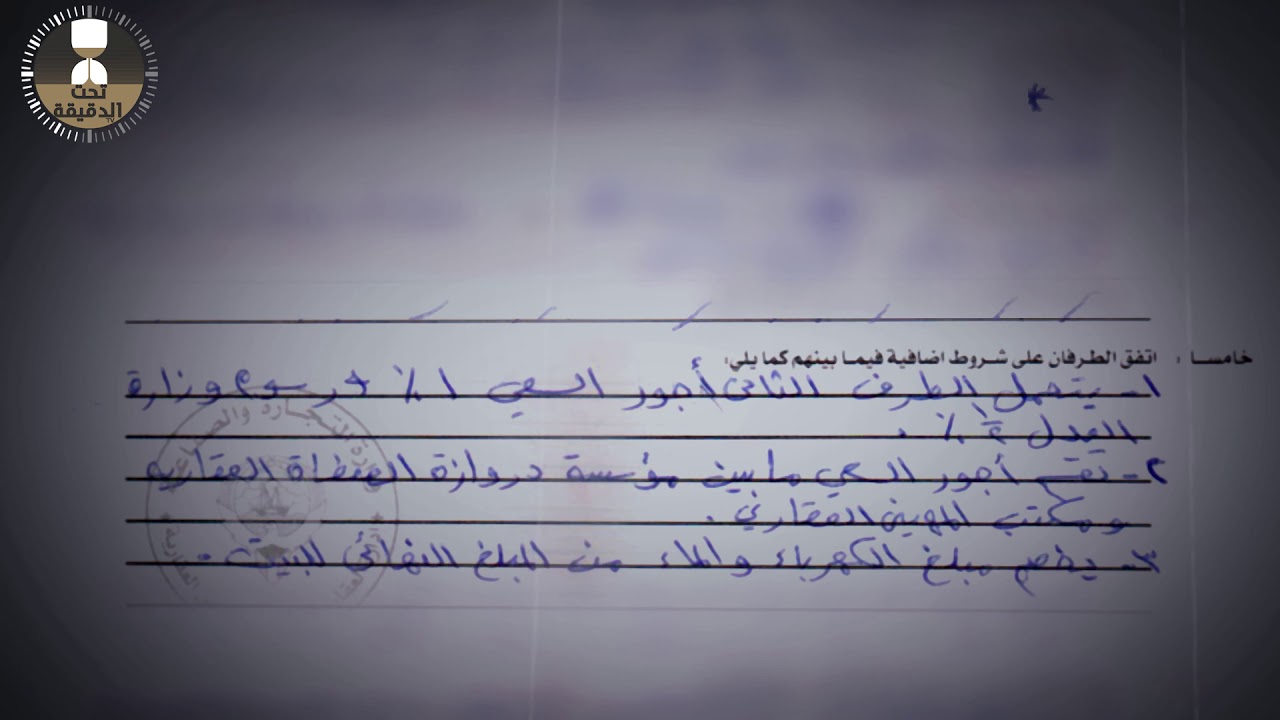 تحت
الدقيقة
خامسا : اتفق الطرفان على شروط اضافية فيما بينهم كما يلي:
١- يتحمل الطرف الثاني أجور السعي ١٪ ورسوم وزارة
العدل ½٪ .
٢- تقسم أجور السعي ما بين مؤسسة دروازة الصفاة العقارية
ومكتب المهيني العقاري .
٣- يخصم مبلغ الكهرباء والماء من المبلغ النهائي للبيت .